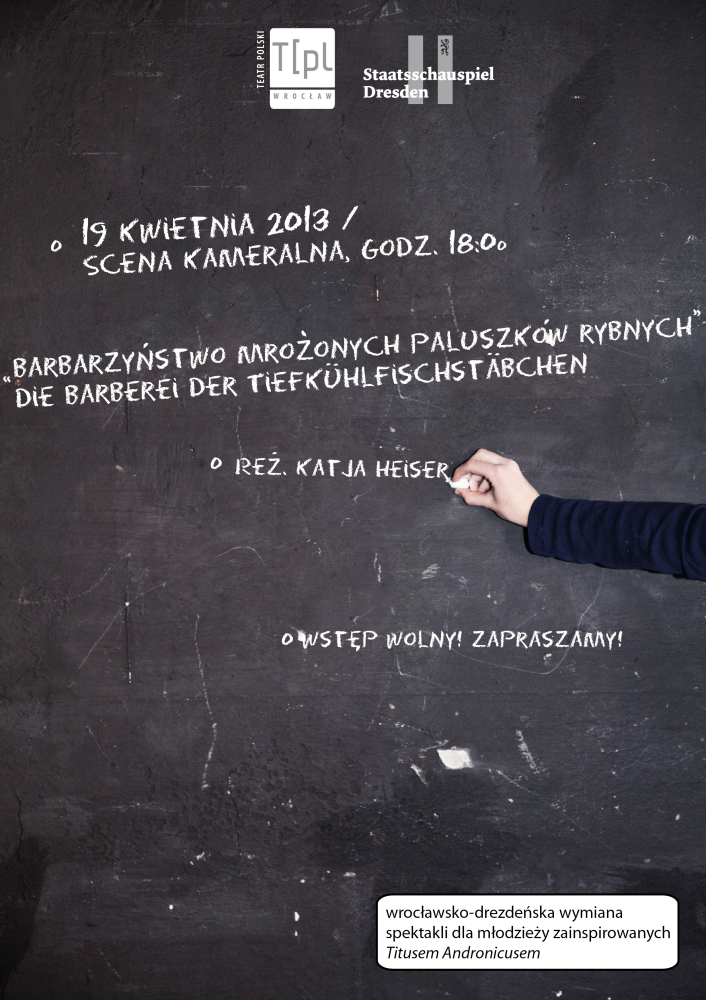 TEATR POLSKI
T[pl
WROCŁAW
Staatsschauspiel
Dresden
o 19 KWiETNiA 2013 /
SCENA KAMERALNA, GODZ. 18:00
"BARBARZYŃSTWO MROŻONYCH PALUSZKÓW RYBNYCH"
"DiE BARBEREi DER TiEFKÜHLFiSCHSTÄBCHEN
o REŻ. KATJA HEiSER
o WSTĘP WOLNY! ZAPRASZAMY!
wrocławsko-drezdeńska wymiana
spektakli dla młodzieży zainspirowanych
Titusem Andronicusem